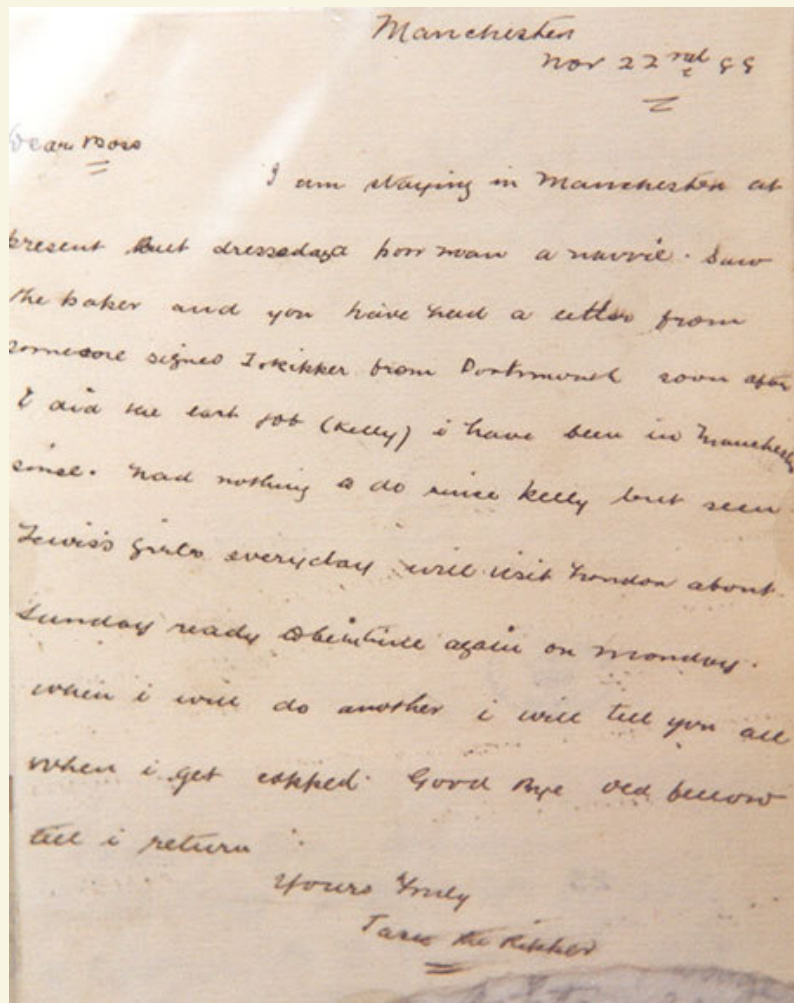 Manchester
Nov 22nd 88
Dear Boss
I am staying in Manchester at
present but dressed as a poor man a navvie. Saw
the paper and you have had a letter from
someone signed J. Ripper from Portsmouth soon after
I did the last job (Kelly) i have been in Manchester
since. had nothing to do since Kelly but seen
Lewis's girls everyday will visit London about
Sunday ready again on Monday.
when i will do another i will tell you all
when i get copped. Good Bye old fellow
till i return
Yours Truly
Jack the Ripper